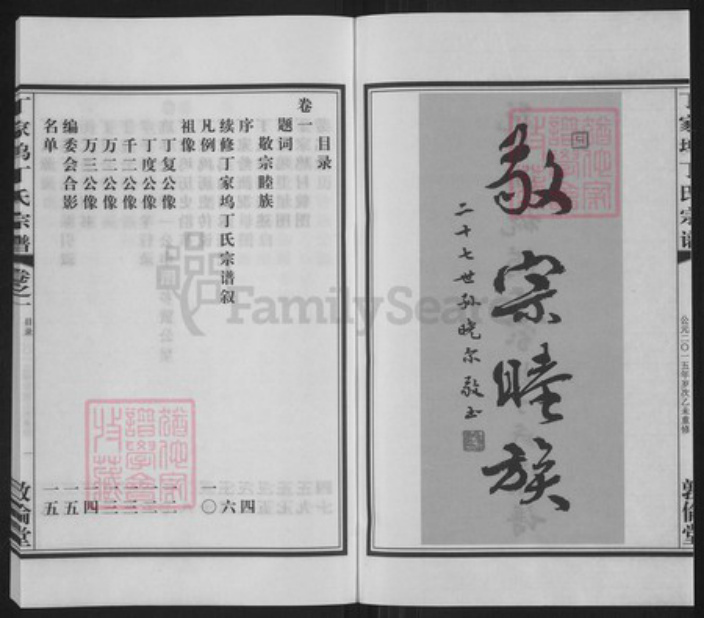 敬宗睦族
二十七世孙晓尔敬书
丁家坞丁氏宗谱
公元二〇一五年岁次乙未重修
敦伦堂
目录
卷一
题词
敬宗睦族
序
续修丁家坞丁氏宗谱叙 四
凡例 六
祖像 一〇
丁复公像
丁度公像
千二公像
万二公像
万三公像 一四
编委会合影 一五
名单 一五
丁家坞丁氏宗谱 卷之一 目录
敦伦堂
FamilySearch